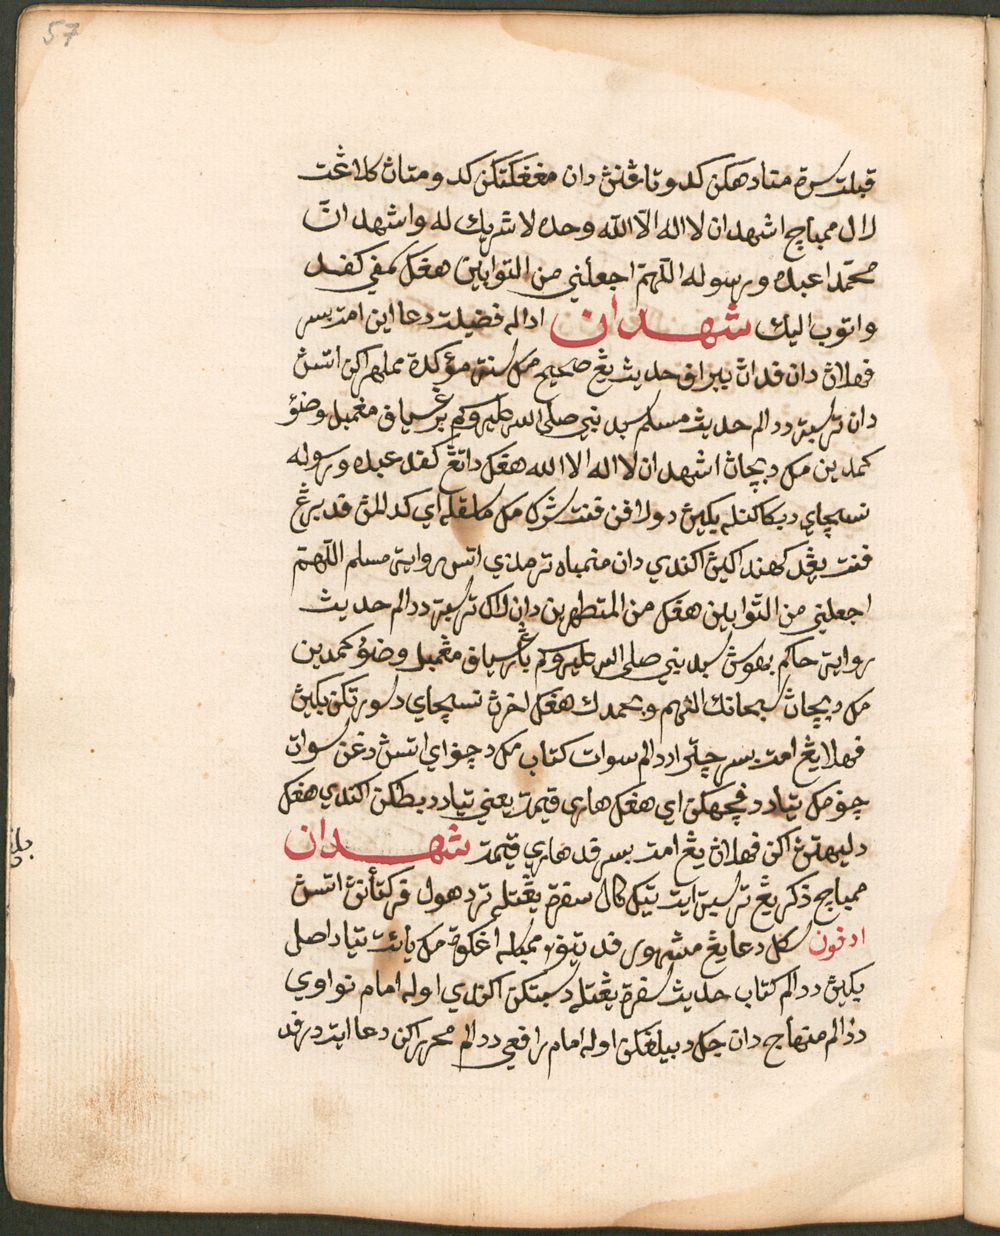 57
قبلت سرة متادهكن كدو تاڤنڽ دان مڠڠكتكن كدو متاڽ كلاڠت
لال ممباچ اشهد ان لا اله الّا الله وحده لا شريك له واشهد انّ
محمّدا عبده ورسوله اللّهمّ اجعلني من التوابين هڠڬ كمفي كفد
واتوب اليك شهدان اداله فضيلت دعا اين امت بسر
فهلاڽ دان فداڽ ببراف حديث يڠ صحيح مك سنة مؤكدة مملهراكن اتسڽ
دان ترسبت ددالم حديث مسلم سبد نبي صلى الله عليه وسلم برڠسياف مڠمبل وضؤ
كمدين مك دبچاڽ اشهد ان لا اله الا الله هڠڬ داتڠ كفد عبده ورسوله
نسچاي دبكاكنله بڬين دولافن فنت شرڬ مك ماسقله اي كدالمڽ فد برڠ
فنت يڠدكهنداكيڽ اكندي دان منمباه ترمذي اتس رواية مسلم اللّهمّ
اجعلني من التوّابين هڠڬ من المتطهرين دان لاڬ ترسبت ددالم حديث
رواية حاكم بهوسڽ سبد نبي صلى الله عليه وسلم بارڠسياف مڠمبل وضؤ كمدين
مك دبچاڽ سبحانك اللهم وبحمدك هڠڬ اخرڽ نسچاي دسورتكن بڬيڽ
فهلا يڠ امت بسر چترا ددالم سوات كتاب مك دچڤ اي اتسڽ دڠن سوات
چڤ مك تياد دفچهكن اي هڠڬ هاري قيمت يعني تياد دبطلكن اكندي هڠڬ
دليهتڽ اكن فهلاڽ يڠ امت بسر فد هاري قيمت شهدان
ممباچ ذكر يڠ ترسبت ايت تيڬ كال سفرة يڠتله تردهول فركتأنڽ اتسڽ
ادفون سڬل دعا يڠ مشهور فد تيڤ٢ ممباسه اڠڬوت مك يائت تياد اصل
بڬيڽ ددالم كتاب حديث سفرة يڠتله دسبتكن اكندي اوله امام نواوي
ددالم منهاج دان جك دبيلڠكن اوله امام رافعي ددالم محرر اكن دعا ايت درفد